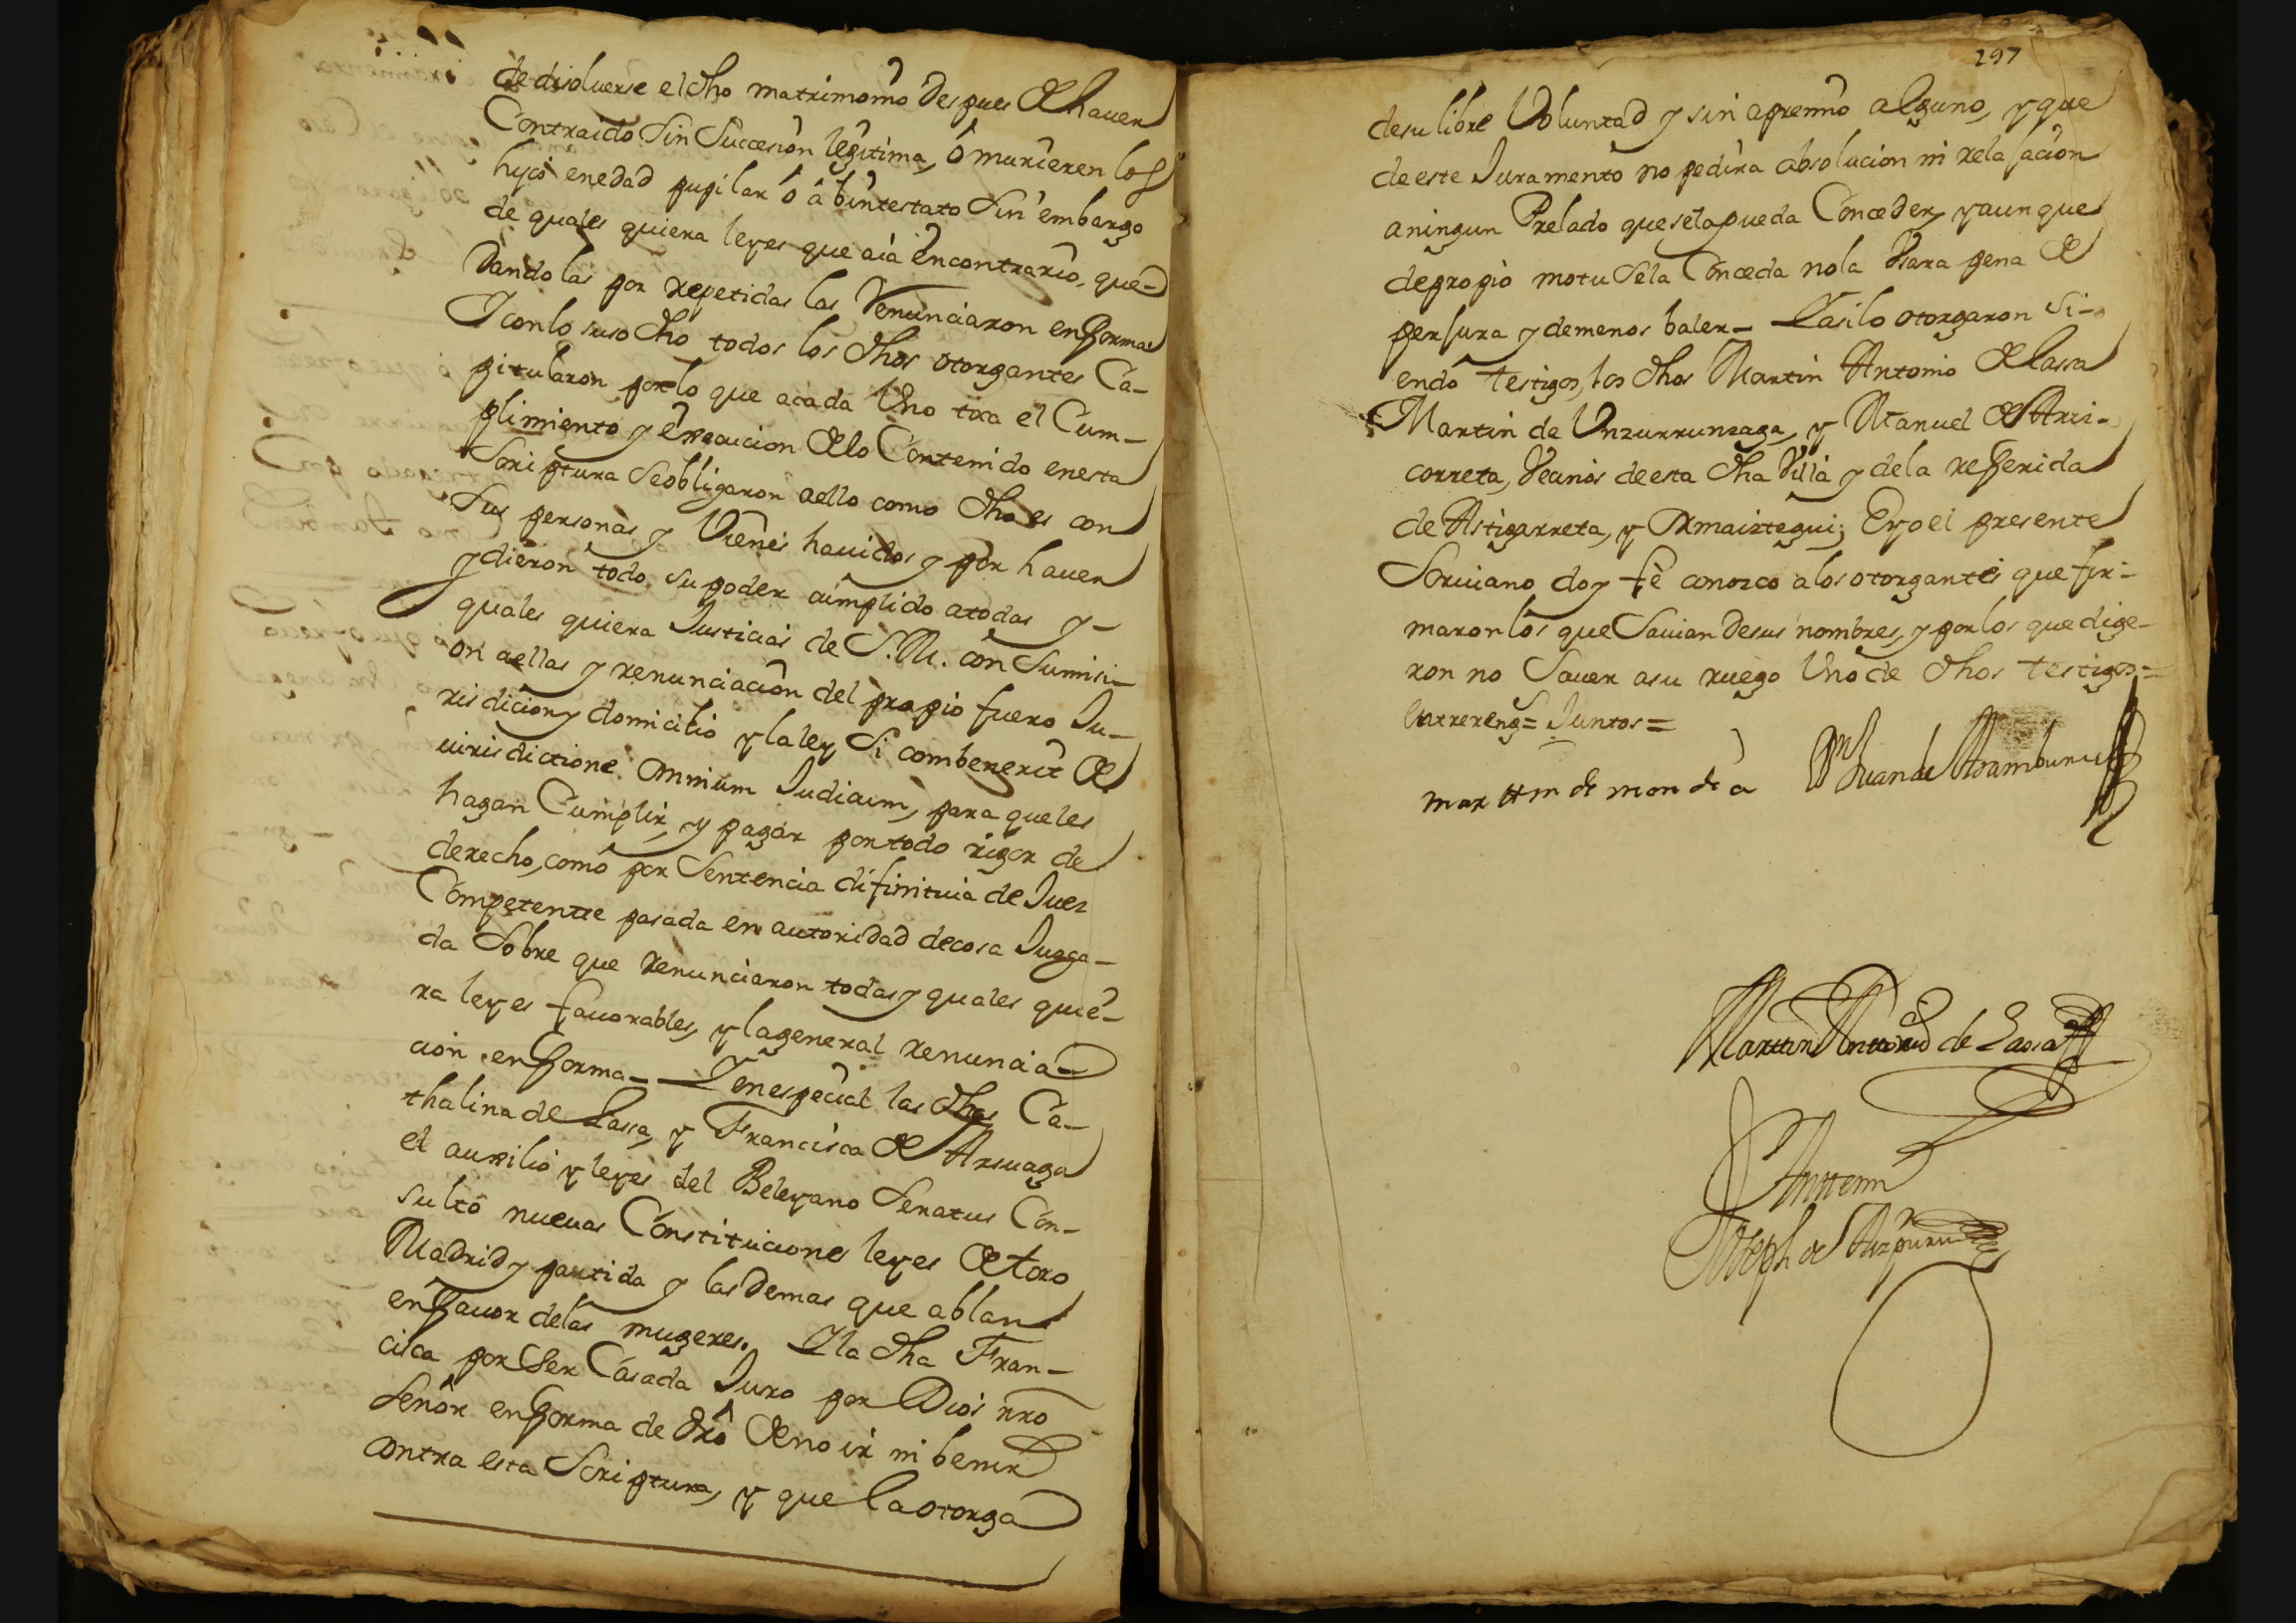 de disolverse el dho matrimonio despues de haver
Contraido Sin Succesion legitima, ó murieren los
hijos en edad pupilar ó abintestato Sin embargo
de quales quiera leyes que aia en contrario, que-
dandolas por repetidas las renunciaron en forma
Y con lo suso dho todos los dhos otorgantes Ca-
pitularon por lo que acada Uno toca el Cum-
plimiento y Execucion de lo Contenido en esta
Scriptura Se obligaron aello como dho es con
Sus personas y Vienes havidos y por haver
y dieron todo su poder cumplido atodas y-
quales quiera Justicias de S.M. con Sumisi-
on aellas y renunciacion del propio fuero Ju-
risdicion y domicilio y la ley Si combenerit de
iurisdictione omnium Judicum, para que les
hagan Cumplir, y pagar por todo rigor de
derecho, como por Sentencia difinitiva de Juez
Competente pasada en autoridad de cosa Juzga-
da Sobre que renunciaron todas y quales quie-
ra leyes favorables, y la general renuncia-
cion en forma - Y en especial las dhas Ca-
thalina de Lassa, y Francisca de Arsuaga
el auxilio y leyes del Beleyano Senatus Con-
sulto nuevas Constituciones leyes de toro
Madrid y partida y las demas que ablan
en favor de las mugeres. Y la dha Fran-
cisca por Ser Casada Juro por Dios nro
Señor en forma de dro de no ir ni benir
contra esta Scriptura, y que la otorga
197
de su libre Voluntad y sin apremio alguno, y que
de este Juramento no pedira absolucion ni relajacion
aningun Prelado que se la pueda Conceder, y aun que
de propio motu Se la Conceda no la Usara pena de
perjura y de menos baler - Y asi lo otorgaron Si-
endo testigos, los dhos Martin Antonio de Lassa
Martin de Unzurrunzaga, y Manuel de Arri-
correta, Vecinos de esta dha Villa y de la referida
de Astigarreta, y Ormaiztegui; E yo el presente
Scrivano doy fé conozco a los otorgantes que fir-
maron los que Savian de sus nombres, y por los que dige-
ron no Saver a su ruego Uno de dhos testigos =
Entrereng = Juntos =
marttin de mon de a Dn Juan de Aramburu
Marttin Antonio de Lassa
Ante mi
Joseph de Aizpuru